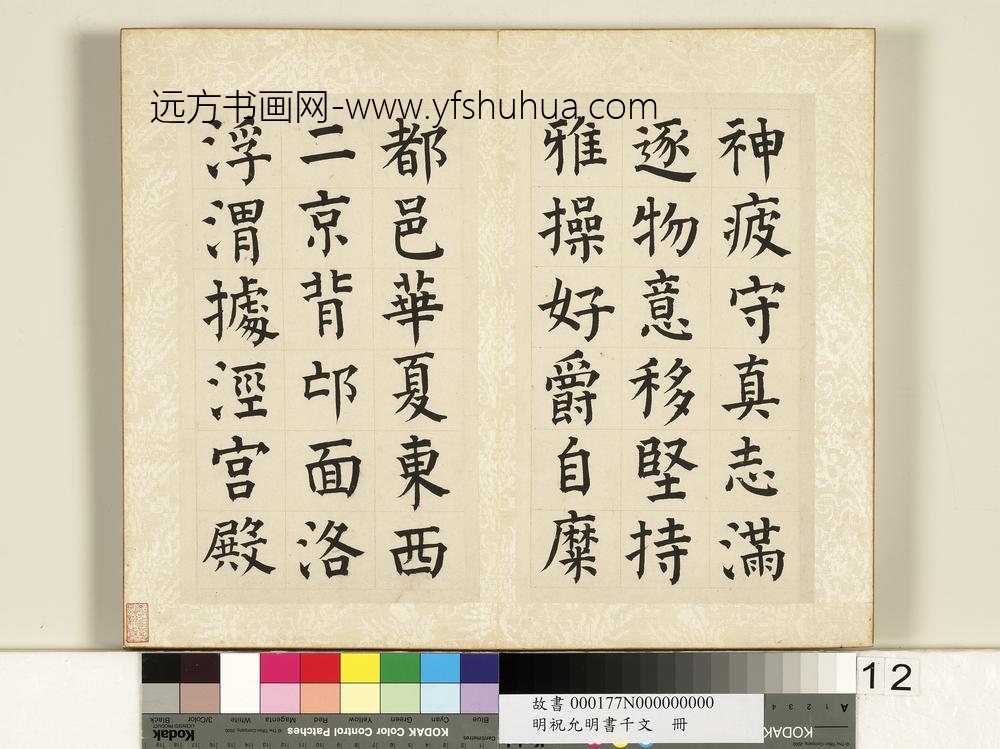 远方书画网-www.yfshuhua.com
神疲守真志滿
逐物意移堅持
雅操好爵自糜
都邑華夏東西
二京背邙面洛
浮渭據涇宮殿
12
故書 000177N000000000
明祝允明書千文 冊
KODAK Color Control Patches
Blue Cyan Green Yellow Red Magenta White 3/Color Black
Kodak
LICENSED PRODUCT
Centimetres
KODAK
A 1 2 3 4